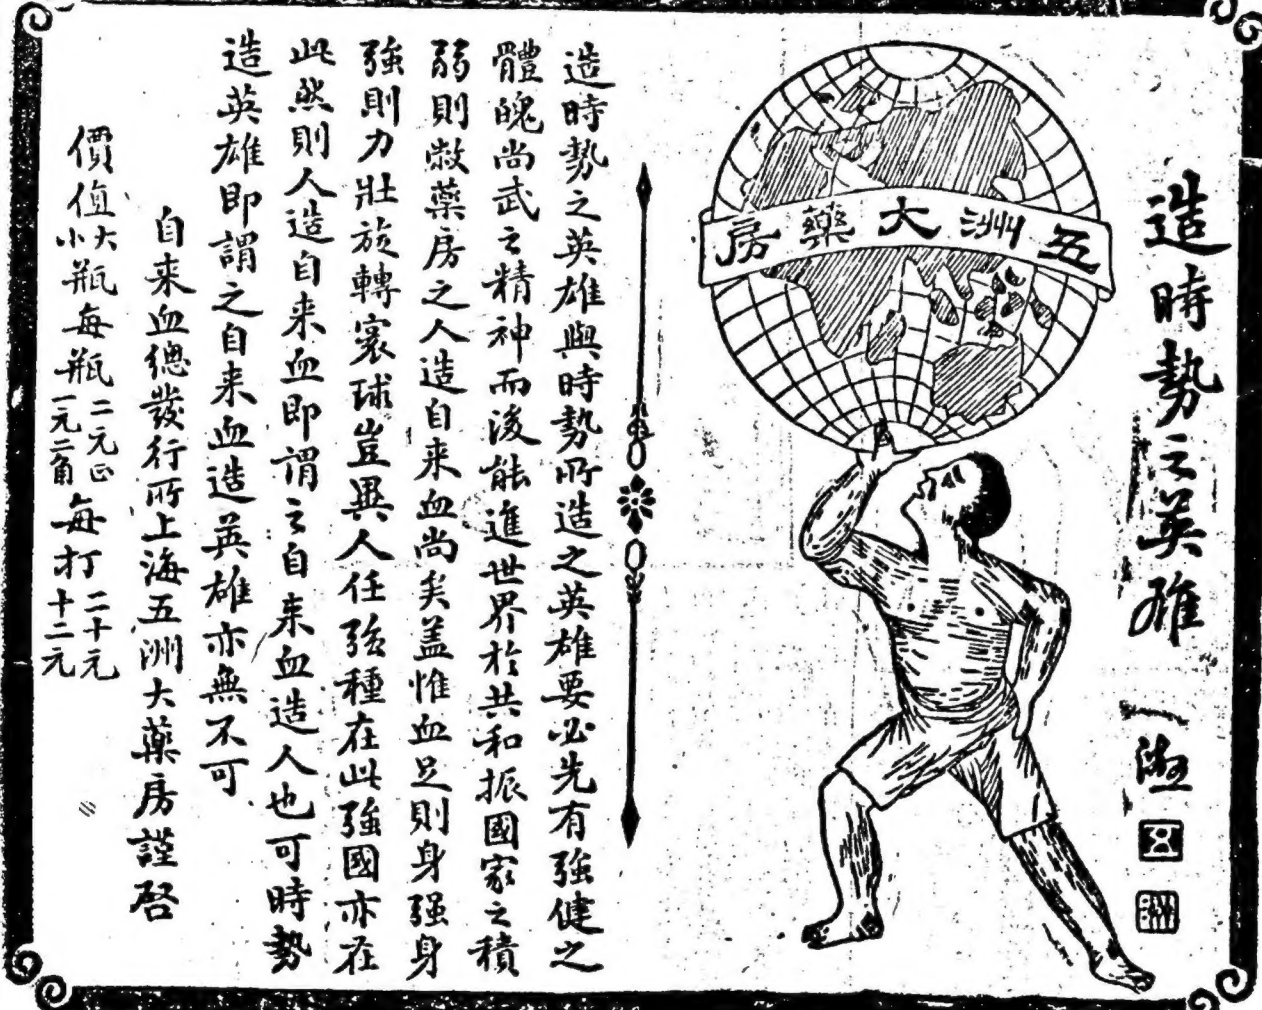 造時勢之英雄
五洲大藥房
造時勢之英雄與時勢所造之英雄要必先有強健之
體魄尚武之精神而後能進世界於共和振國家之積
弱則敝藥房之人造自来血尚矣盖惟血足則身强身
強則力壯旋轉寰球豈異人任強種在此強國亦在
此然則人造自来血即謂之自来血造人也可時勢
造英雄即謂之自来血造英雄亦無不可
自来血總發行所上海五洲大藥房謹啓
價值大瓶每瓶二元正每打二十元
小瓶每瓶一元二角每打十二元